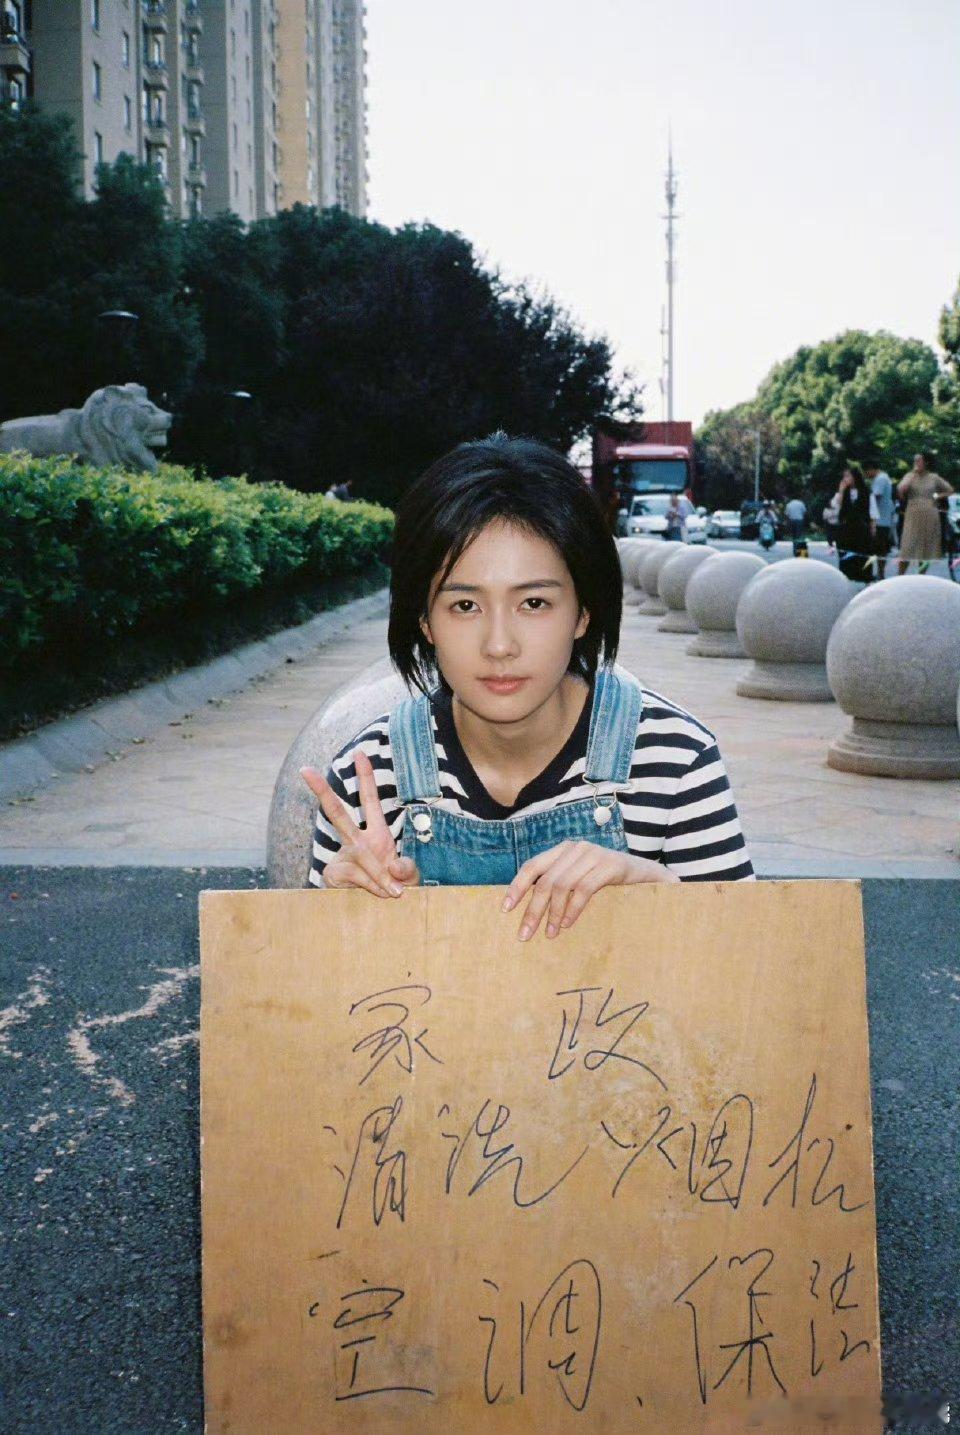 家 政
清洗烟机
空调、保洁